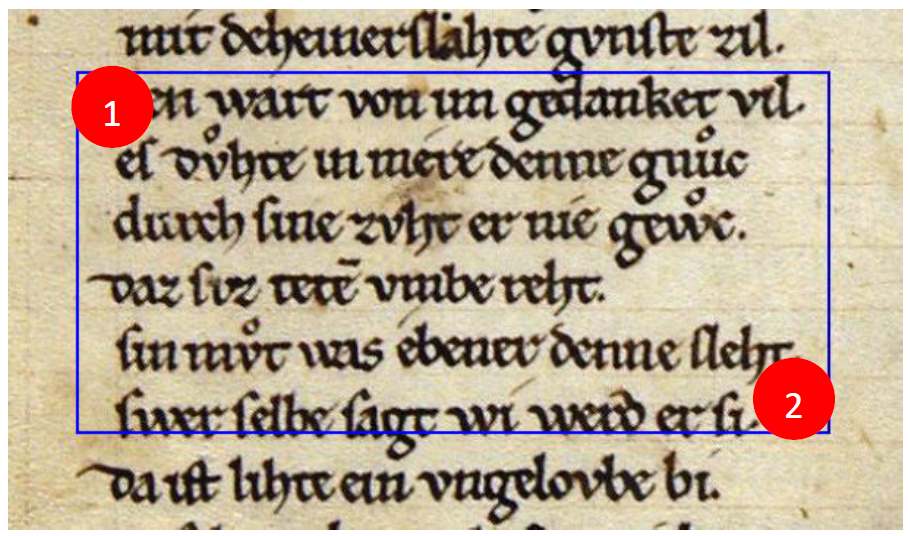 mit deheinerſlahte gvnſte zil.
1 wart von im gedanket vil.
eſ dvͦhte in mere denne gnuͦc
durch ſine zvht er nie gewͦc.
daz ſiz tetē vmbe reht.
ſin mvͦt was ebener denne ſleht
2
ſwer ſelbe ſagt wi werd er ſi.
da iſt lihte ein vngelovbe bi.